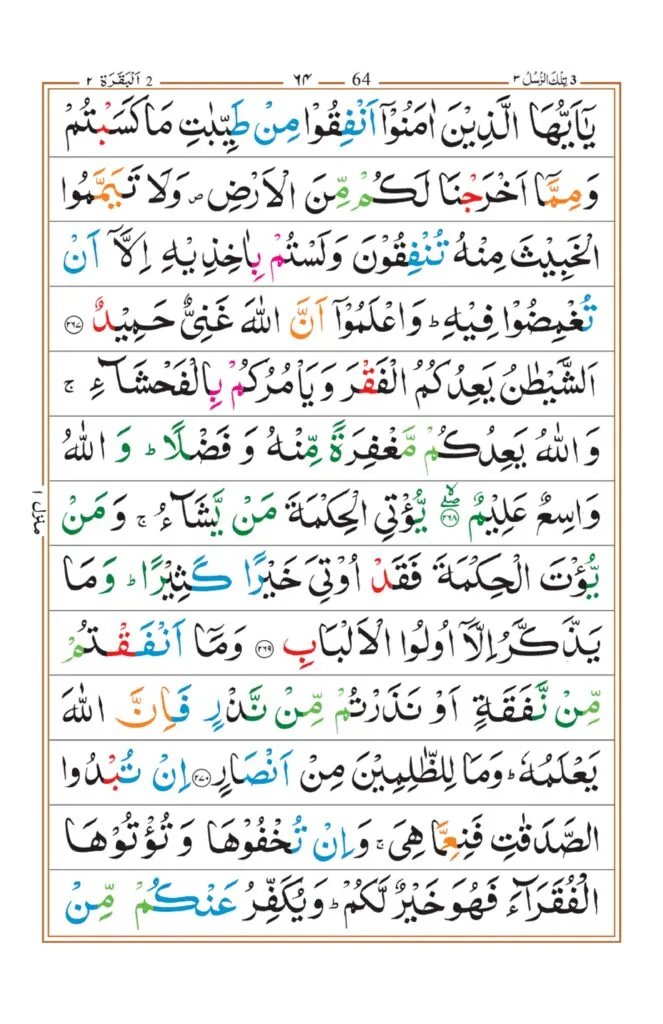 3 تِلْكَ الرُّسُلُ ٣ 64 ٦٤ 2 اَلْبَقَرَة ٢
يٰۤاَيُّهَا الَّذِيْنَ اٰمَنُوْۤا اَنْفِقُوْا مِنْ طَيِّبٰتِ مَا كَسَبْتُمْ
وَ مِمَّاۤ اَخْرَجْنَا لَكُمْ مِّنَ الْاَرْضِ ۪ وَلَا تَيَمَّمُوا
الْخَبِيْثَ مِنْهُ تُنْفِقُوْنَ وَلَسْتُمْ بِاٰخِذِيْهِ اِلَّاۤ اَنْ
تُغْمِضُوْا فِيْهِ ؕ وَاعْلَمُوْۤا اَنَّ اللّٰهَ غَنِيٌّ حَمِيْدٌ ۝٢٦٧
اَلشَّيْطٰنُ يَعِدُكُمُ الْفَقْرَ وَيَاْمُرُكُمْ بِالْفَحْشَآءِ ۚ
وَاللّٰهُ يَعِدُكُمْ مَّغْفِرَةً مِّنْهُ وَفَضْلًا ؕ وَاللّٰهُ
وَاسِعٌ عَلِيْمٌ ۝٢٦٨ۖۙ يُّؤْتِي الْحِكْمَةَ مَنْ يَّشَآءُ ۚ وَمَنْ
يُّؤْتَ الْحِكْمَةَ فَقَدْ اُوْتِيَ خَيْرًا كَثِيْرًا ؕ وَمَا
يَذَّكَّرُ اِلَّاۤ اُولُوا الْاَلْبَابِ ۝٢٦٩ وَمَاۤ اَنْفَقْتُمْ
مِّنْ نَّفَقَةٍ اَوْ نَذَرْتُمْ مِّنْ نَّذْرٍ فَاِنَّ اللّٰهَ
يَعْلَمُهٗ ؕ وَمَا لِلظّٰلِمِيْنَ مِنْ اَنْصَارٍ ۝٢٧٠ اِنْ تُبْدُوا
الصَّدَقٰتِ فَنِعِمَّا هِيَ ۚ وَاِنْ تُخْفُوْهَا وَتُؤْتُوْهَا
الْفُقَرَآءَ فَهُوَ خَيْرٌ لَّكُمْ ؕ وَيُكَفِّرُ عَنْكُمْ مِّنْ
منزل ١